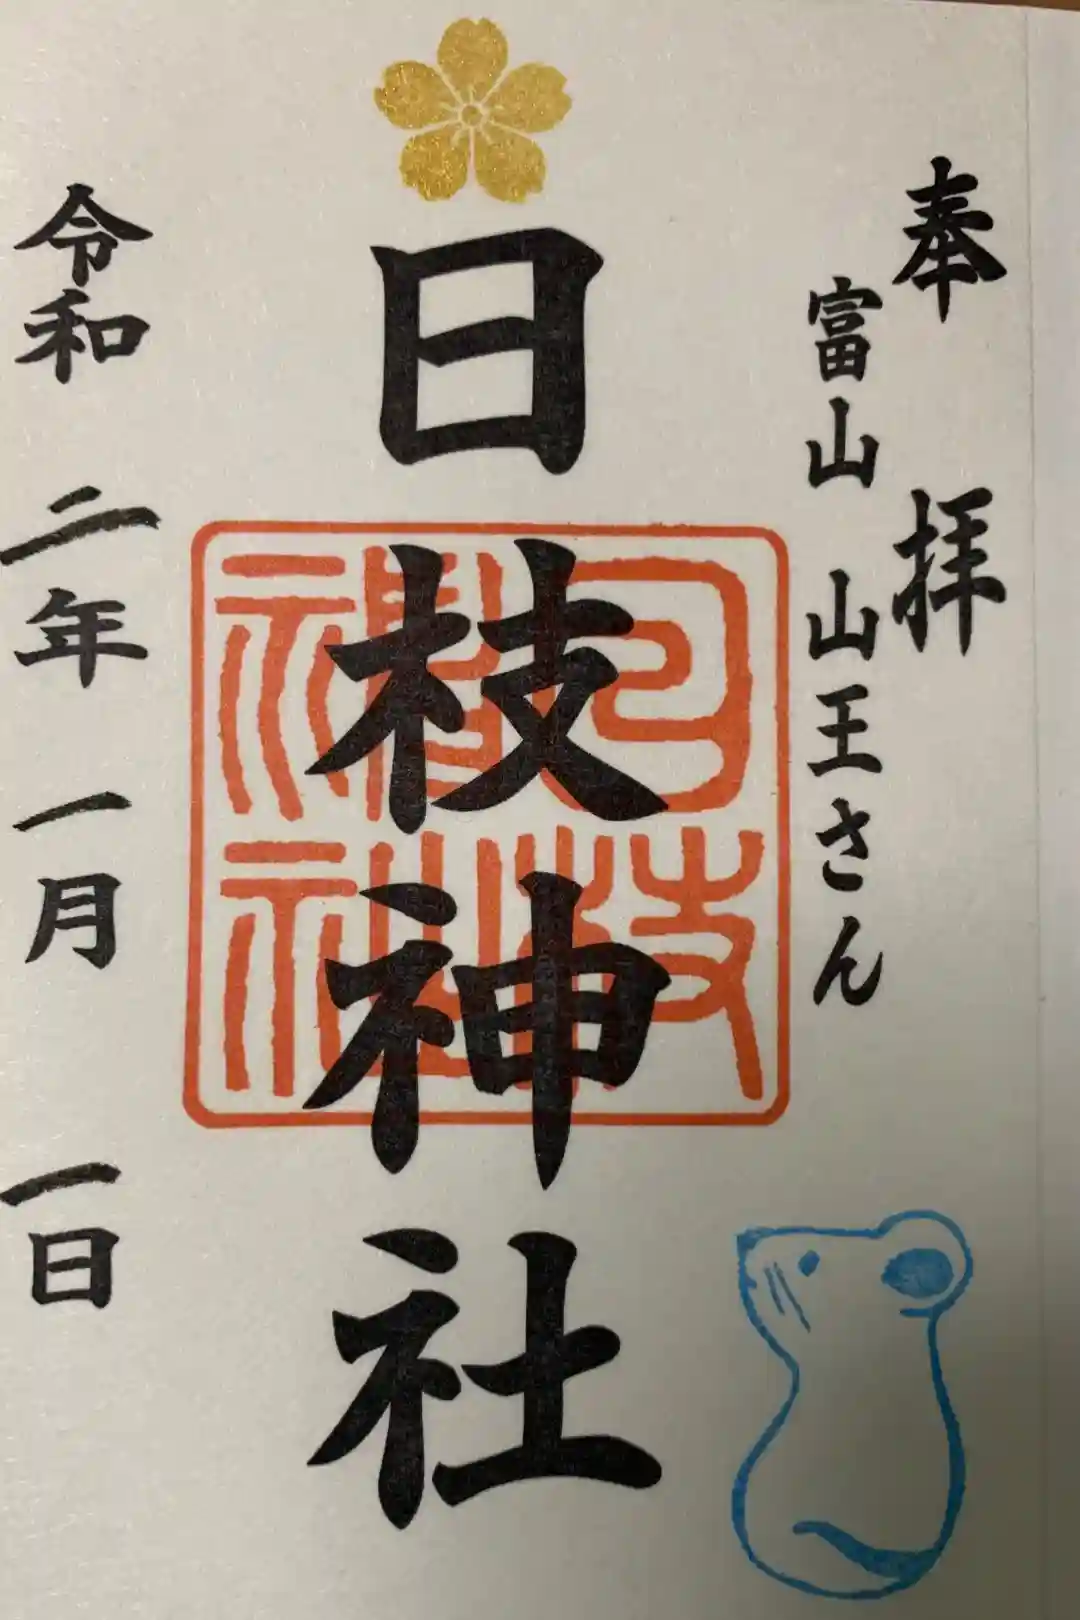 奉拝
富山 山王さん
日枝神社
日枝神社
令和二年一月一日